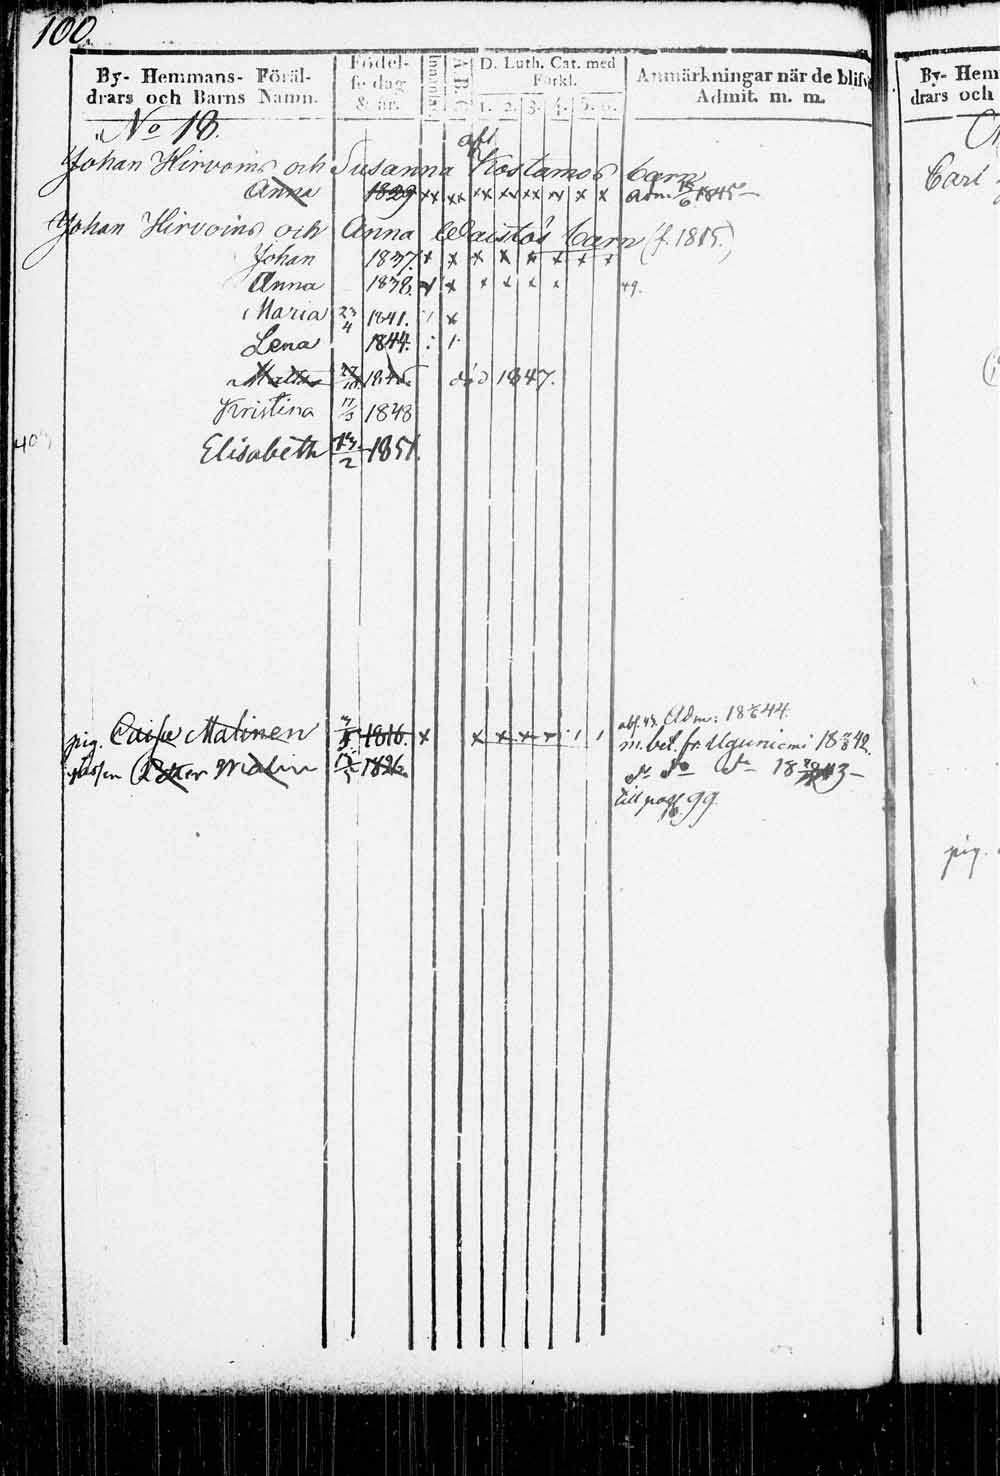 100.
By- Hemmans- Föräl-
drars och Barns Namn.
Födel-
se dag
& år.
Innanläs.
A B C
D. Luth. Cat. med
Förkl.
1. 2. 3. 4. 5. 6.
Anmärkningar när de blifv
Admit. m. m.
No 18.
afl.
Johan Hirvoins och Susanna Kostamos barn
Anna 1829 x x x x x x x x adm. 6 1845
Johan Hirvoins och Anna Waistös barn (f. 1815.)
Johan 1837. x x x x x x x x
Anna 1839. x x x x x x 49.
Maria 23/4 1841. x
Lena 1844.
död 1847.
Kristina 17/3 1848
Elisabeth 13/2 1851.
pig. Caisa Matinen 1816. x x x x x Adm: 18 44.
m. bet. fr. 18 42.
Petter Malin 1826. 18 43
till pag. 99.
By- Hem
drars och
Carl
pig.